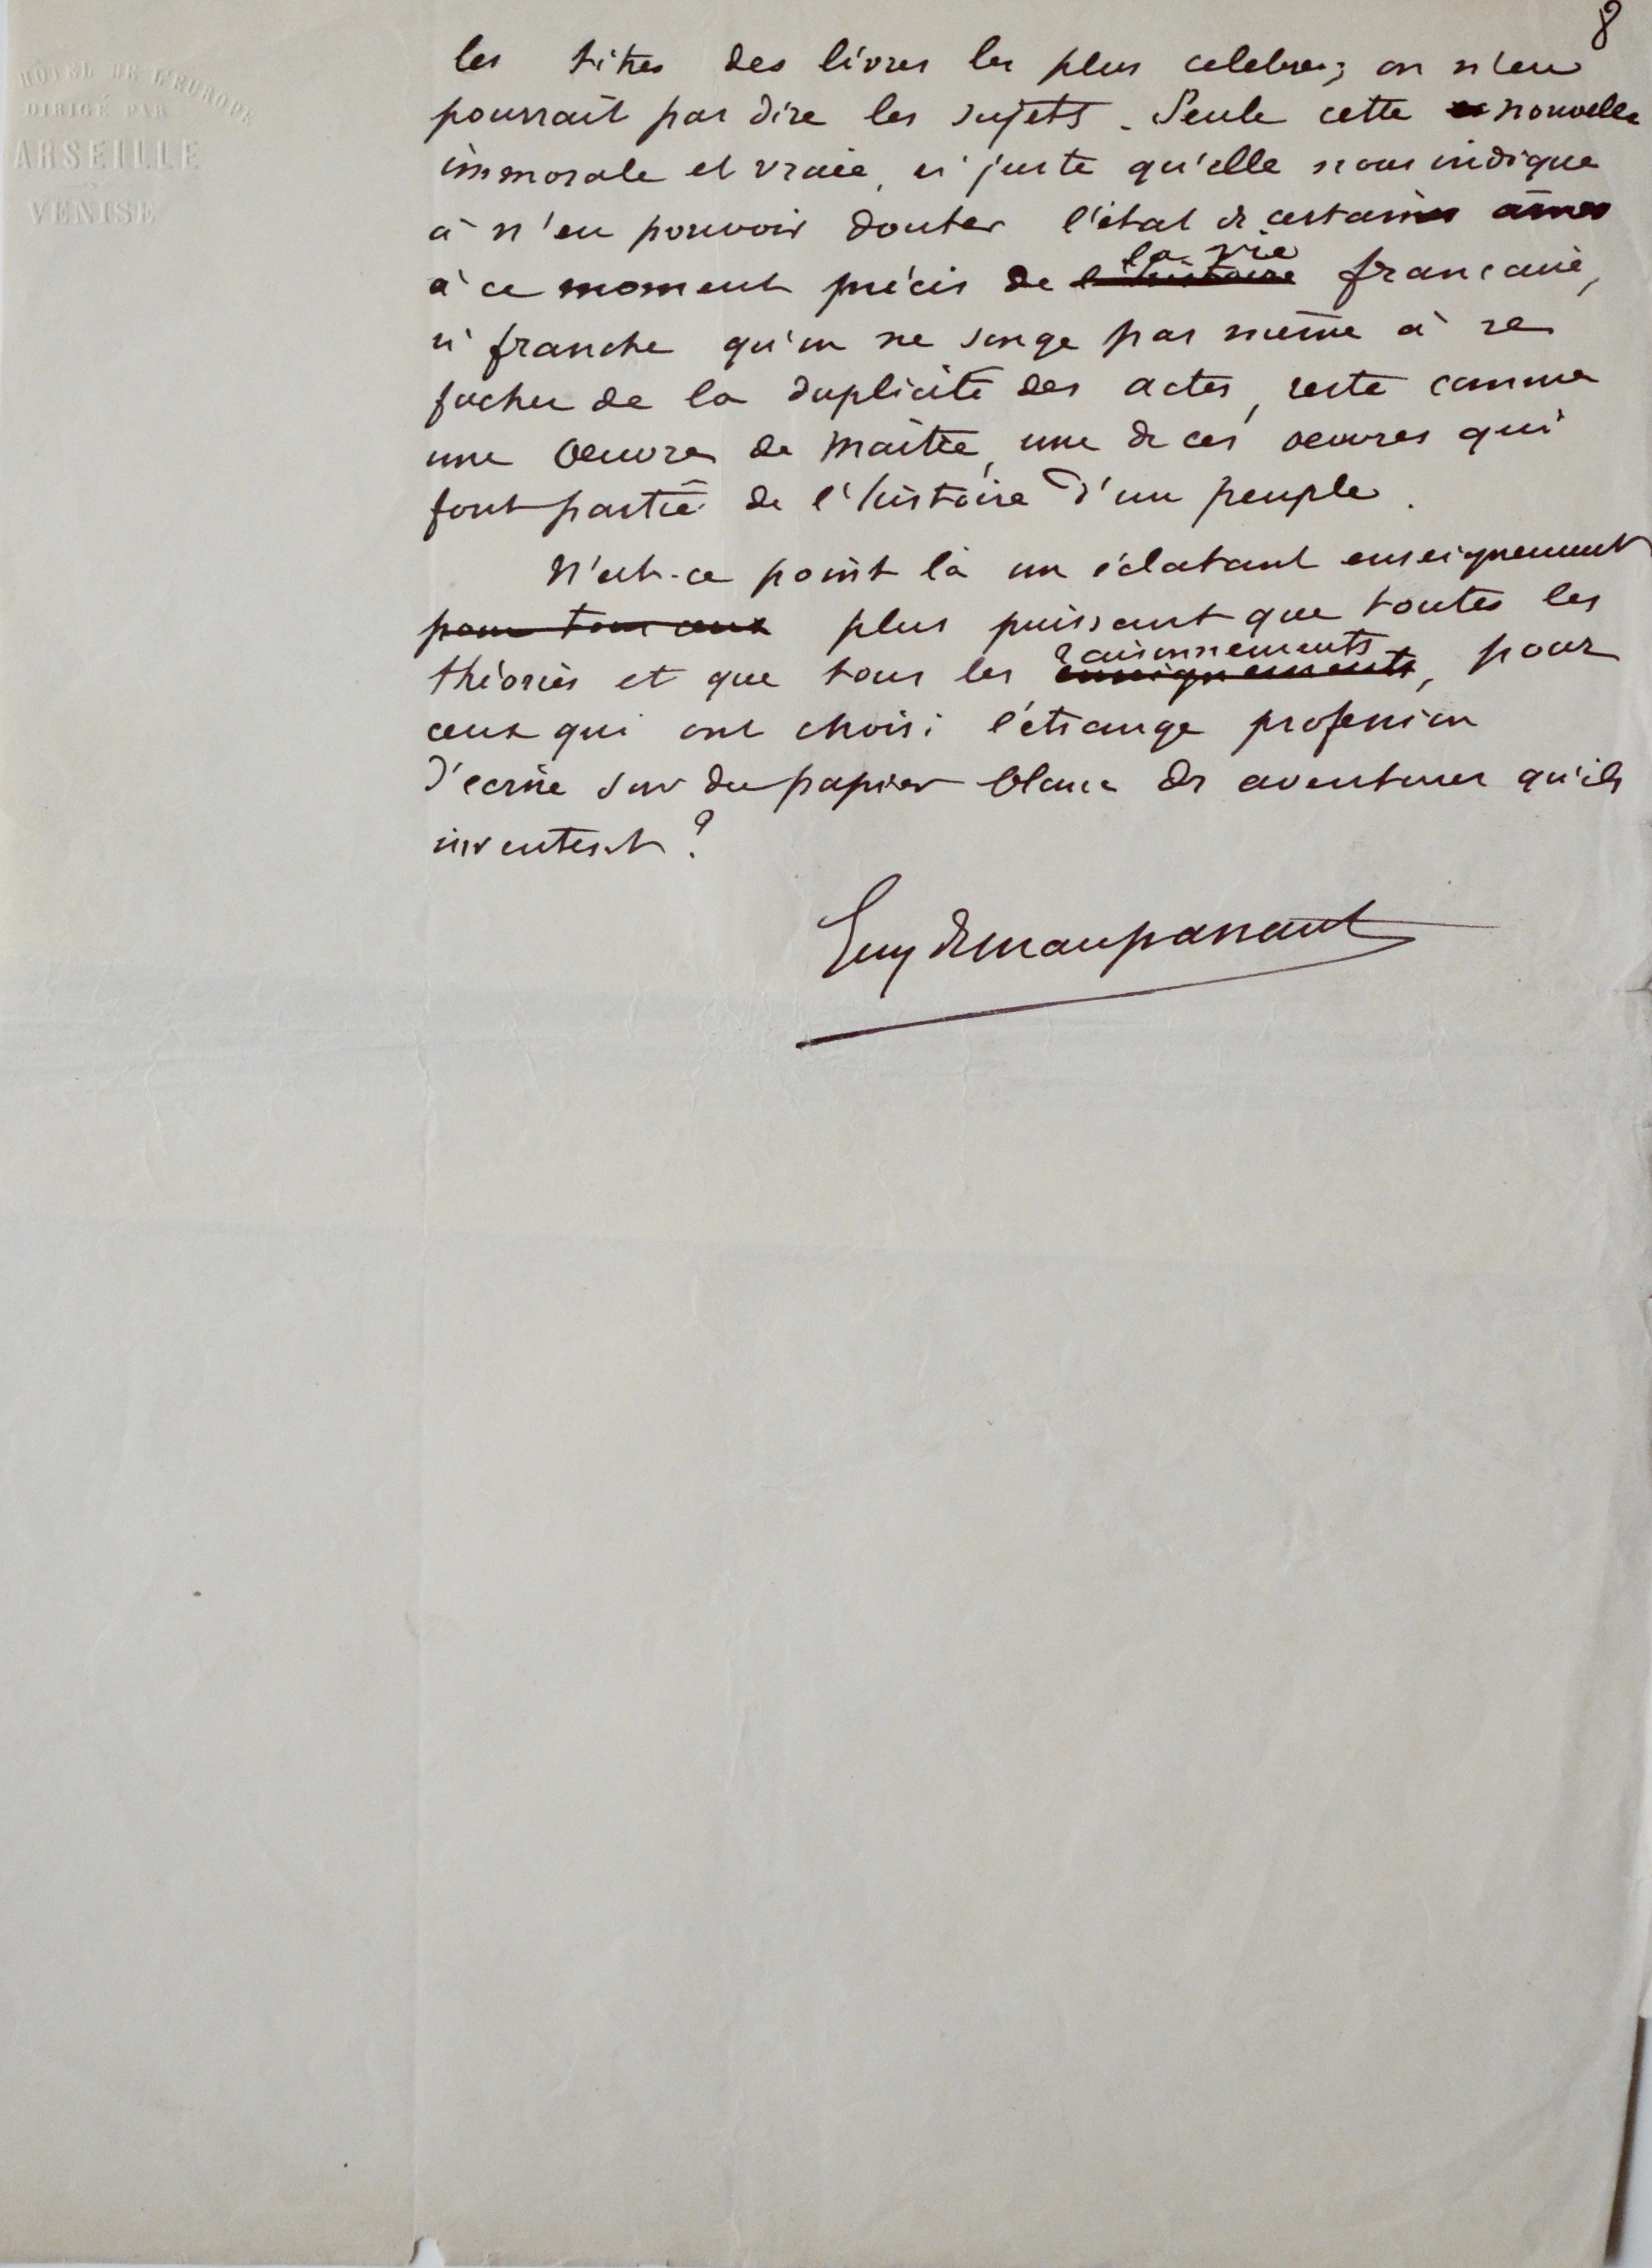 8
HÔTEL DE L'EUROPE
DIRIGÉ PAR
ARSEILLE
VENISE
les titres des livres les plus celebres; on n'en
pourrait pas dire les sujets. Seule cette nouvelle
immorale et vraie, si juste qu'elle nous indique
à n'en pouvoir douter l'état de certaines âmes
la vie
à ce moment précis de l'histoire française,
si franche qu'on ne songe pas même à se
facher de la duplicité des actes, reste comme
une Oeuvre de Maître, une de ces oeuvres qui
font partie de l'histoire d'un peuple.
N'est-ce point là un éclatant enseignement
pour tous ceux plus puissant que toutes les
raisonnements
théories et que tous les enseignements, pour
ceux qui ont choisi l'étrange profession
d'ecrire sur du papier blanc des aventures qu'ils
inventent?
Guy de Maupassant